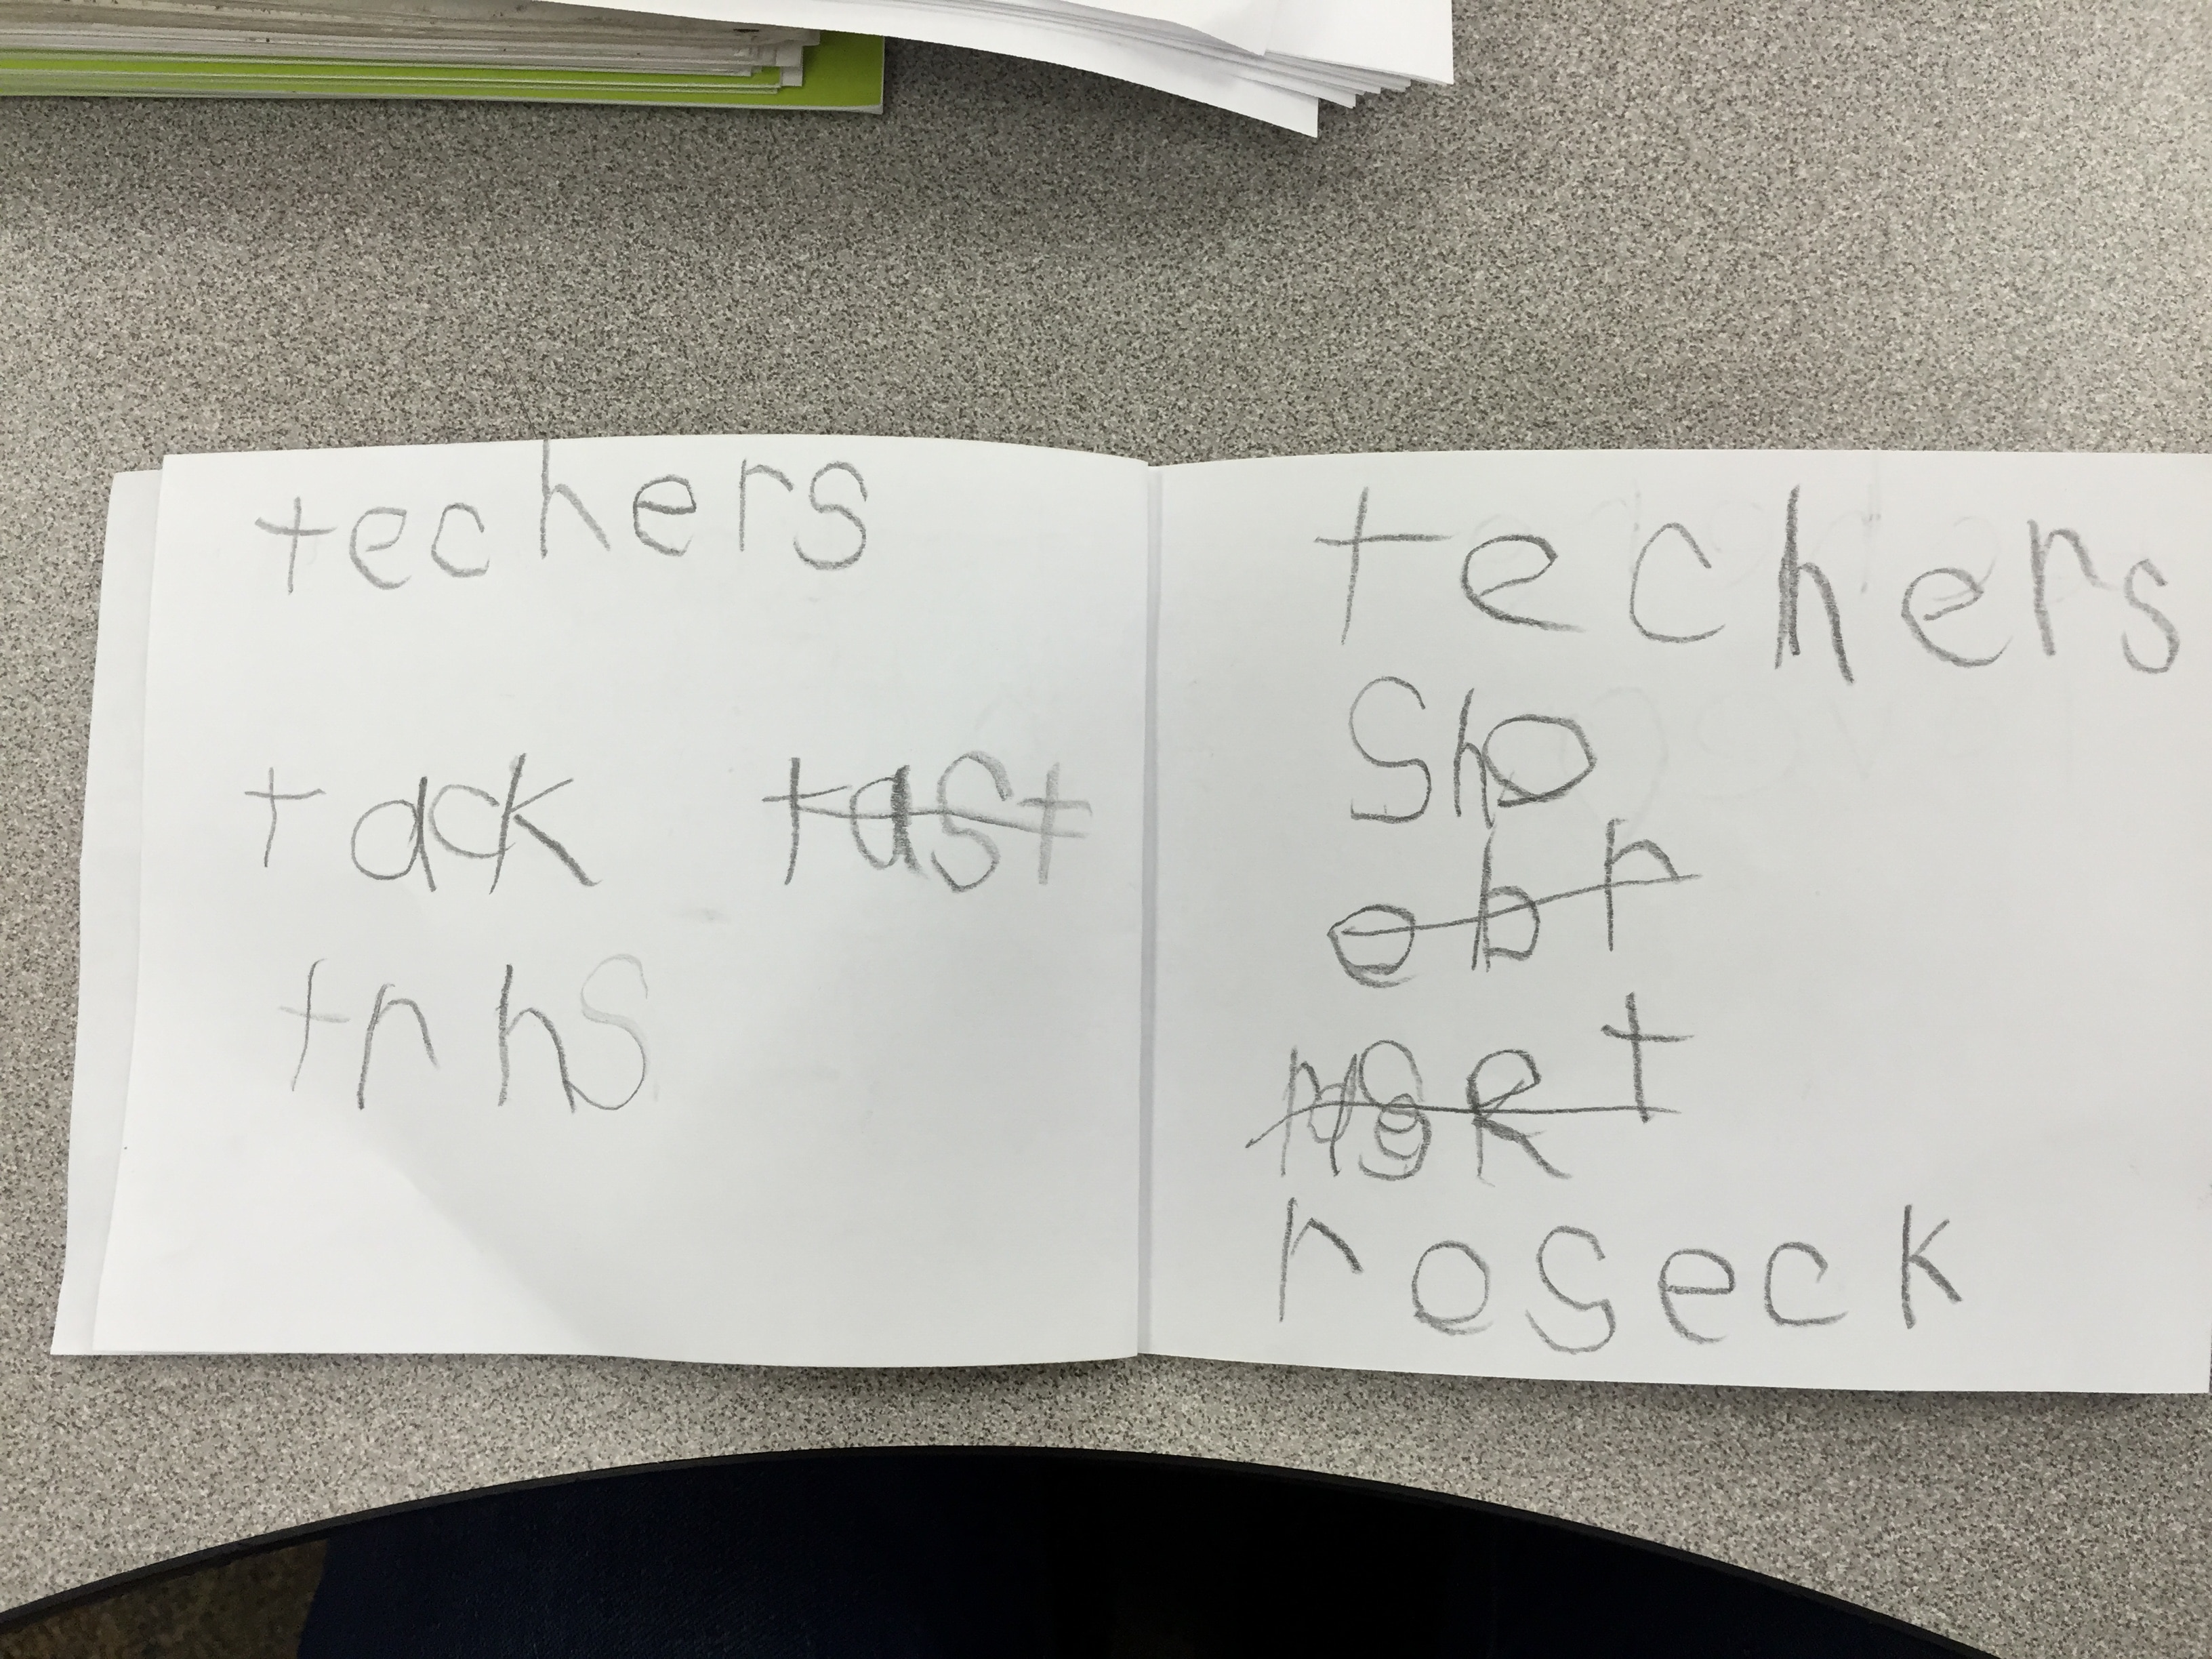 techers
tack tast
trhs
techers
Sho
ebr
roseck